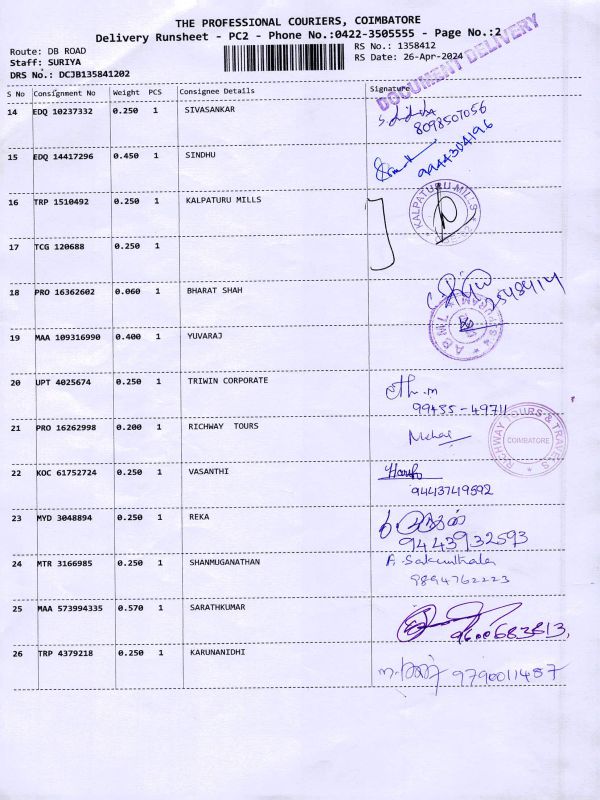 THE PROFESSIONAL COURIERS, COIMBATORE
Delivery Runsheet - PC2 - Phone No.:0422-3505555 - Page No.:2
Route: DB ROAD
Staff: SURIYA
DRS No.: DCJB135841202
RS No.: 1358412
RS Date: 26-Apr-2024
DOCUMENT DELIVERY
S No Consignment No Weight PCS Consignee Details Signature
14 EDQ 10237332 0.250 1 SIVASANKAR
8098507056
15 EDQ 14417296 0.450 1 SINDHU
9444304196
16 TRP 1510492 0.250 1 KALPATURU MILLS
KALPATURU MILLS
17 TCG 120688 0.250 1
18 PRO 16362602 0.060 1 BHARAT SHAH
19 MAA 109316990 0.400 1 YUVARAJ
20 UPT 4025674 0.250 1 TRIWIN CORPORATE
99455-49711
21 PRO 16262998 0.200 1 RICHWAY TOURS
RICHWAY TOURS & TRAVELS
COIMBATORE
22 KOC 61752724 0.250 1 VASANTHI
9443749592
23 MYD 3048894 0.250 1 REKA
9443932593
24 MTR 3166985 0.250 1 SHANMUGANATHAN
A. Sakunthala
9894762223
25 MAA 573994335 0.570 1 SARATHKUMAR
26 TRP 4379218 0.250 1 KARUNANIDHI
9790011487